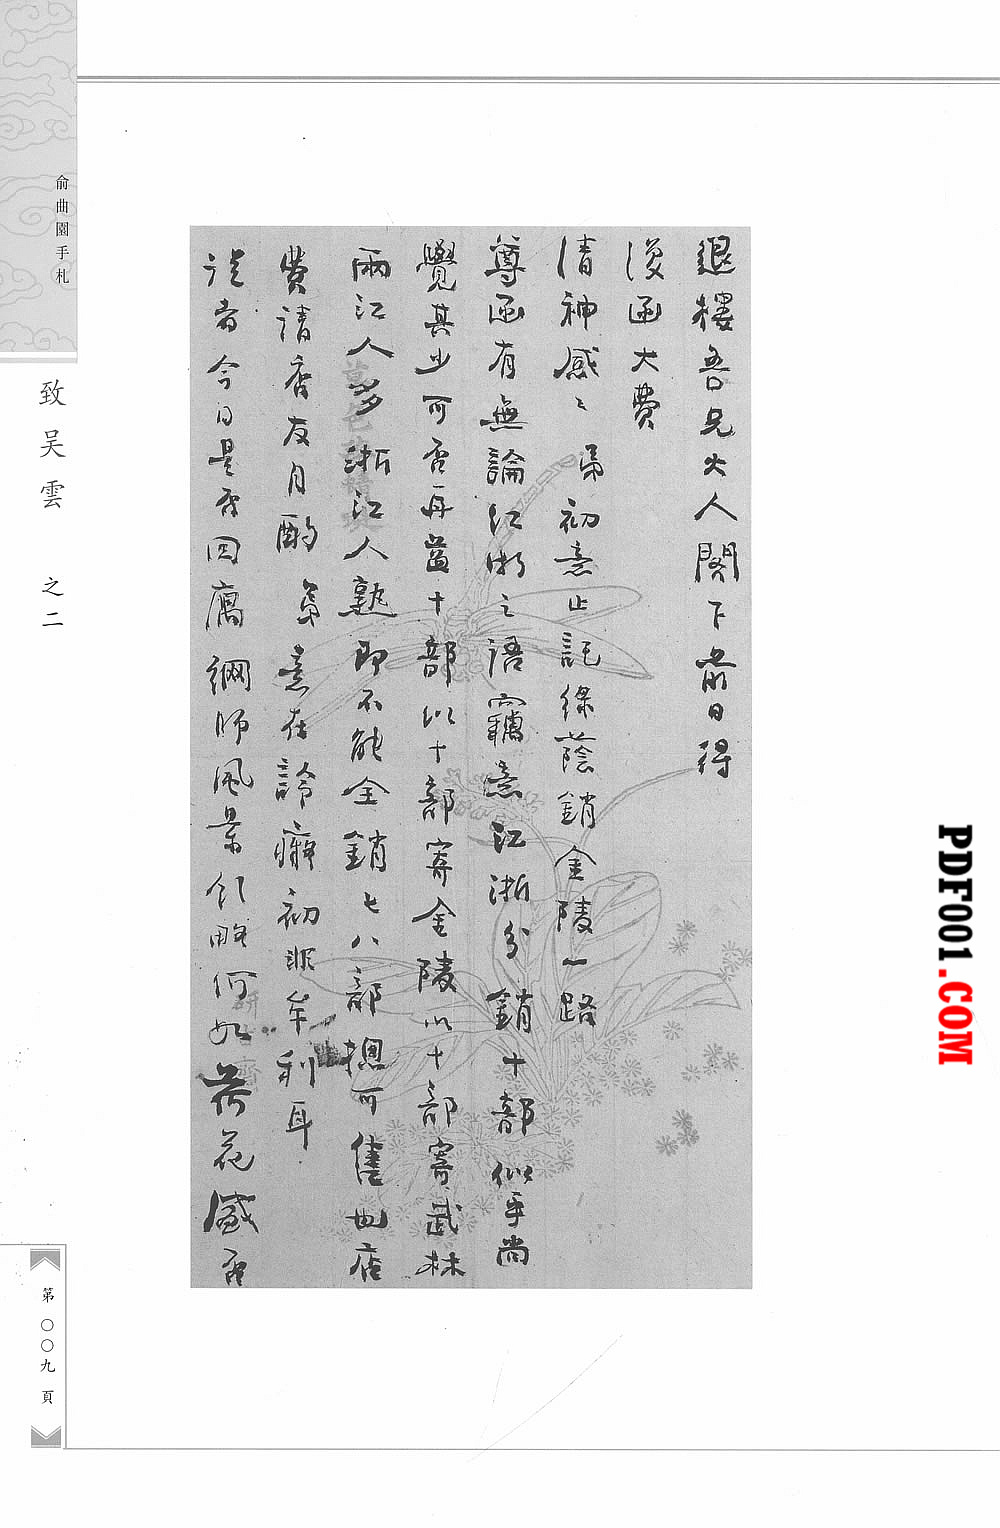 俞曲園手札
致吳雲 之二
退樓吾兄大人閣下前日得
復函大費
清神感〻弟初意止託綠蔭銷金陵一路
尊函有無論江浙之語竊意江浙分銷十部似乎尚
覺其少可否再益十部以十部寄金陵以十部寄武林
兩江人多浙江人熟即不能全銷七八部摠可售也店
費請香友月酌弟意在詅癡初非牟利耳
说者今日是否回寓網師風景領略何如荷花盛否
第〇〇九頁
PDF001.COM